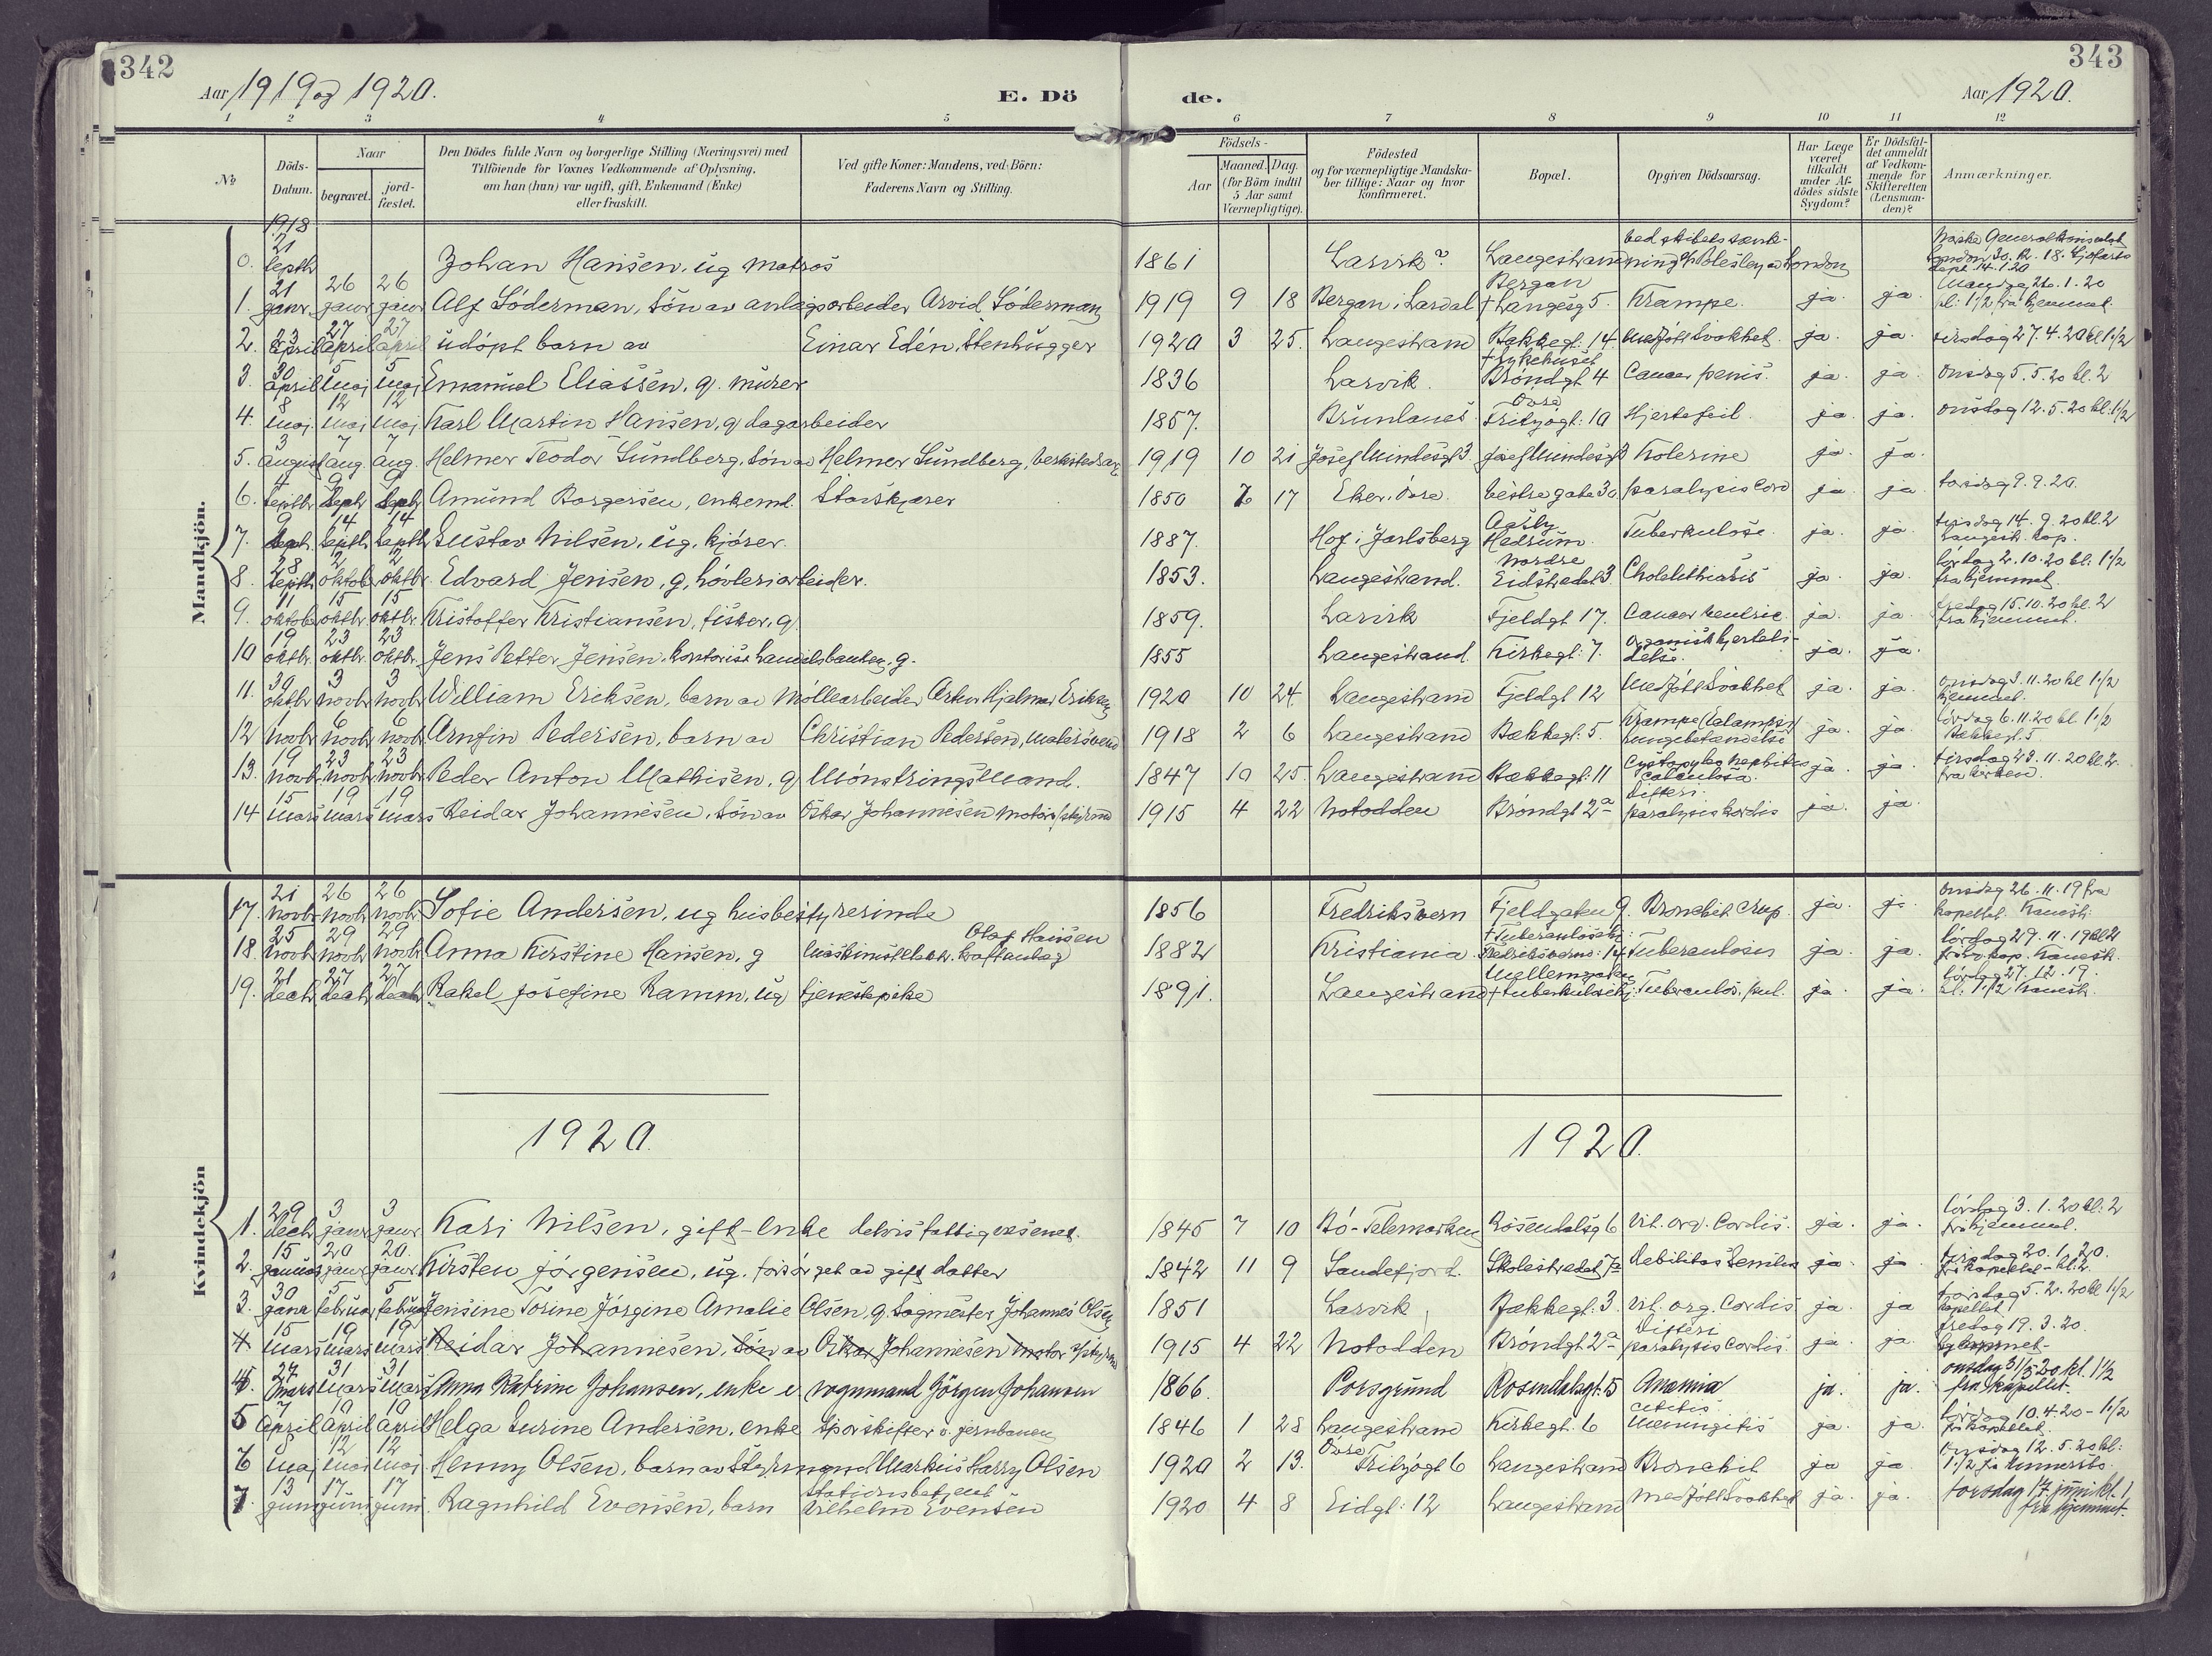 342
Aar 1919 og 1920.
E. Dö
de.
Aar 1920.
343
1 2 3 4 5 6 7 8 9 10 11 12
No
Döds-Datum.
Naar
begravet.
jord-fæstet.
Den Dödes fulde Navn og borgerlige Stilling (Næringsvei) med
Tilföiende for Voxnes Vedkommende af Oplysning,
om han (hun) var ugift, gift, Enkemand (Enke)
eller fraskilt.
Ved gifte Koner: Mandens, ved Börn:
Faderens Navn og Stilling.
Födsels-
Aar
Maaned. Dag.
(for Börn indtil
5 Aar samt
Værnepligtige).
Födested
og for værnepligtige Mandska-
ber tillige: Naar og hvor
konfirmeret.
Bopæl.
Opgiven Dödsaarsag.
Har Læge
været
tilkaldt
under Af-
dödes sidste
Sygdom?
Er Dödsfal-
det anmeldt
af Vedkom-
mende for
Skifteretten
(Lensman-
den)?
Anmærkninger.
Mandkjön.
0. 1918 21 septbr Johan Hansen, ug matros 1861 Larvik? Langestrand ved skibets senk-ning London
1. 21 janr. 26 janr 26 janr Alf Söderman, sön av anlægsarbeider Arvid Söderman 1919 9 18 Bergan i Lardal Bergan + Langesg 5. Krampe. ja. ja. Mandag 26.1.20 kl. 1 1/2 fra hjemmet.
2. 23 april 27 april 27 april udöpt barn av Einar Edén, Stenhugger 1920 3 25. Langestrand Bakkegt. 14. Medfött Svakhet. ja. ja. tirsdag 27.4.20 kl 1 1/2
3. 30 april 5 maj 5 maj Emanuel Eliassen, g. murer 1836 Larvik. + Sykehuset Bröndgt 4 Cancer penis. ja. ja. Onsdag 5.5.20 kl. 2
4. 8 maj. 12 maj 12 maj Karl Martin Hansen, g dagarbeider 1857. Brunlanes. Övre Fritzögt: 10 Hjertefeil. ja. ja. onsdag 12.5.20 kl. 1 1/2
5. 3 august 7 aug. 7 aug. Helmer Teodor Sundberg, sön av Helmer Sundberg, verkstedsarb 1919 10 21 Josef Mindesgt 3. Josef Mindesgt 3 Kolerine ja. ja.
6. 4 septbr 9 septr 9 septr Amund Borgersen, enkemd. Storskjærer 1850 7 17 Eker, övre. Vestre gate 30 paralysis cord ja ja torsdag 9.9.20.
7. 9 septr. 14 septbr 14 septbr Gustav Nilsen, ug. kjörer. 1887. Hof i Jarlsberg Hedrum. Tuberkulose. ja. ja. tirsdag 14.9.20 kl. 2 Langestr. kap.
8. 28 septbr 2 oktob 2 oktbr. Edvard Jensen, g, hövleriarbeider. 1853. Langestrand. Nordre Eidstredet 3. Cholelithiasis ja. ja. lördag 2.10.20 kl. 1 1/2 fra hjemmet.
9. 11 oktob 15 oktbr. 15 oktbr. Kristoffer Kristiansen, fisker, g. 1859. Larvik Fjeldgt 17. Cancer ventric. ja. ja. fredag 15.10.20 kl. 2 fra hjemmet.
10 19 oktbr. 23 oktbr. 23 oktbr. Jens Petter Jensen. kontorist handelsbanken, g. 1855 Langestrand Kirkegt: 7. organisk hjerteli-delse. ja. ja.
11. 30 oktbr 3 novbr 3 novbr William Eriksen, barn av Möllearbeider Hjalmar Eriksen 1920 10 24. Langestrand Fjeldgt 12 Medfött Svakhet ja. ja. onsdag 3.11.20 kl 1 1/2 hjemmet.
12 novbr 6 novbr 6 novbr Arnfin Pedersen, barn av Christian Pedersen, malersvend 1918 2 6 Langestrand Bakkegt: 5. Krampe lungebetændelse ja. ja. lördag 6.11.20 kl 1 1/2 Bakkegt. 5
13. 19 novbr 23 novbr 23 novbr Peder Anton Mathisen, g Mönstringsmand. 1847 10 25. Langestrand Bakkegt: 11 calculosa. ja. ja. tirsdag 23.11.20 kl 2. fra kirken.
14 15 mars 19 mars 19 mars Reidar Johannesen, sön av Oskar Johannesen 1915 4 22 Notodden Bröndgt 2a Difteri. paralysis cordis ja. ja.
Kvindekjön
17. 21 novbr 26 novbr 26 novbr. Sofie Andersen, ug husbestyrerinde 1856 Fredriksvern Fjeldgaten 9. Bronchit crup. ja. ja. Onsdag 26.11.19 fra kapellet.
18. 25 novbr 29 novbr 29 novbr Anna Kirstine Hansen, g Olaf Hansen kraftanlæg 1882 Kristiania Tuberculosis ja. ja. lördag 29.11.19 kl 2
19. 21 decbr 27 decbr 27 decbr Rakel Josefine Ramm, ug tjenestepike 1891. Langestrand Tuberculos. pul. ja. ja. lördag 27.12.19. kl. 1 1/2
1920.
1920.
1. 29 decbr 3 janr 3 janr Kari Nilsen, gift-enke delvis fattigvesenet. 1845 7 10 Bö-Telemarken Rosendalsg 6 Vit. org. Cordis. ja. ja. lördag 3.1.20 kl. 2 fra hjemmet.
2. 15 januar 20 janr 20. janr Kirsten Jörgensen, ug. forsörget av gift datter 1842 11 9 Sandefjord. Skolestredet 7a Debilitas senilis ja. ja. tirsdag 20.1.20. fra kapellet - kl. 2.
3. 30 janr 5 februar 5 februar Jensine Torine Jörgine Amalie Olsen, g. Sagmester Johannes Olsen 1851 Larvik Bakkegt. 3. Vit. org. Cordis ja. ja torsdag 5.2.20 kl 1 1/2 kapellet
4 15 mars 19 mars 19 mars Reidar Johannesen, sön av Oskar Johannesen 1915 4 22 Notodden Bröndgt 2a Difteri paralysis cordis. ja. ja. fredag 19.3.20. hjemmet-
4. 27 mars 31 mars 31 mars Anna Katrine Johansen, enke e. vognmand Jörgen Johansen 1866. Porsgrund Rosendalsgt. 5 Anæmia ja. ja. onsdag 31/3 20 kl. 1 1/2 fra kapellet.
5 7 april 10 april 10 april Helga Surine Andersen, enke Sporskifter v. jernbanen 1846 1 28 Langestrand Kirkegt. 6 Meningitis ja. ja. lördag 10.4.20 - 1 1/2 fra kapellet.
6 8 maj 12 maj 12 maj Henny Olsen, barn av Styrmand Markus Harry Olsen 1920 2 13. Övre Fritzögt 6 Langestrand Bronchit ja ja. Onsdag 12.5.20 kl: 1 1/2
7. 13 juni 17 juni 17 juni Ragnhild Evensen, barn Stationsbetjent Vilhelm Evensen 1920 4 8 Eidgt: 12 Langestrand Medfött Svakhet ja. ja. torsdag 17 juni kl. 1 fra hjemmet.